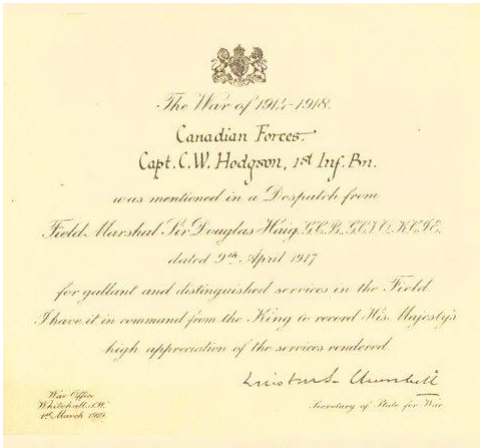 The War of 1914-1918.
Canadian Forces.
Capt. C.W. Hodgson, 1st Inf. Bn.
was mentioned in a Despatch from
Field Marshal Sir Douglas Haig, G.C.B., G.C.V.O., K.C.I.E.
dated 9th April 1917
for gallant and distinguished services in the Field.
I have it in command from the King to record His Majesty's
high appreciation of the services rendered.
Winston S. Churchill
War Office
Whitehall, S.W.
1st March 1919.
Secretary of State for War